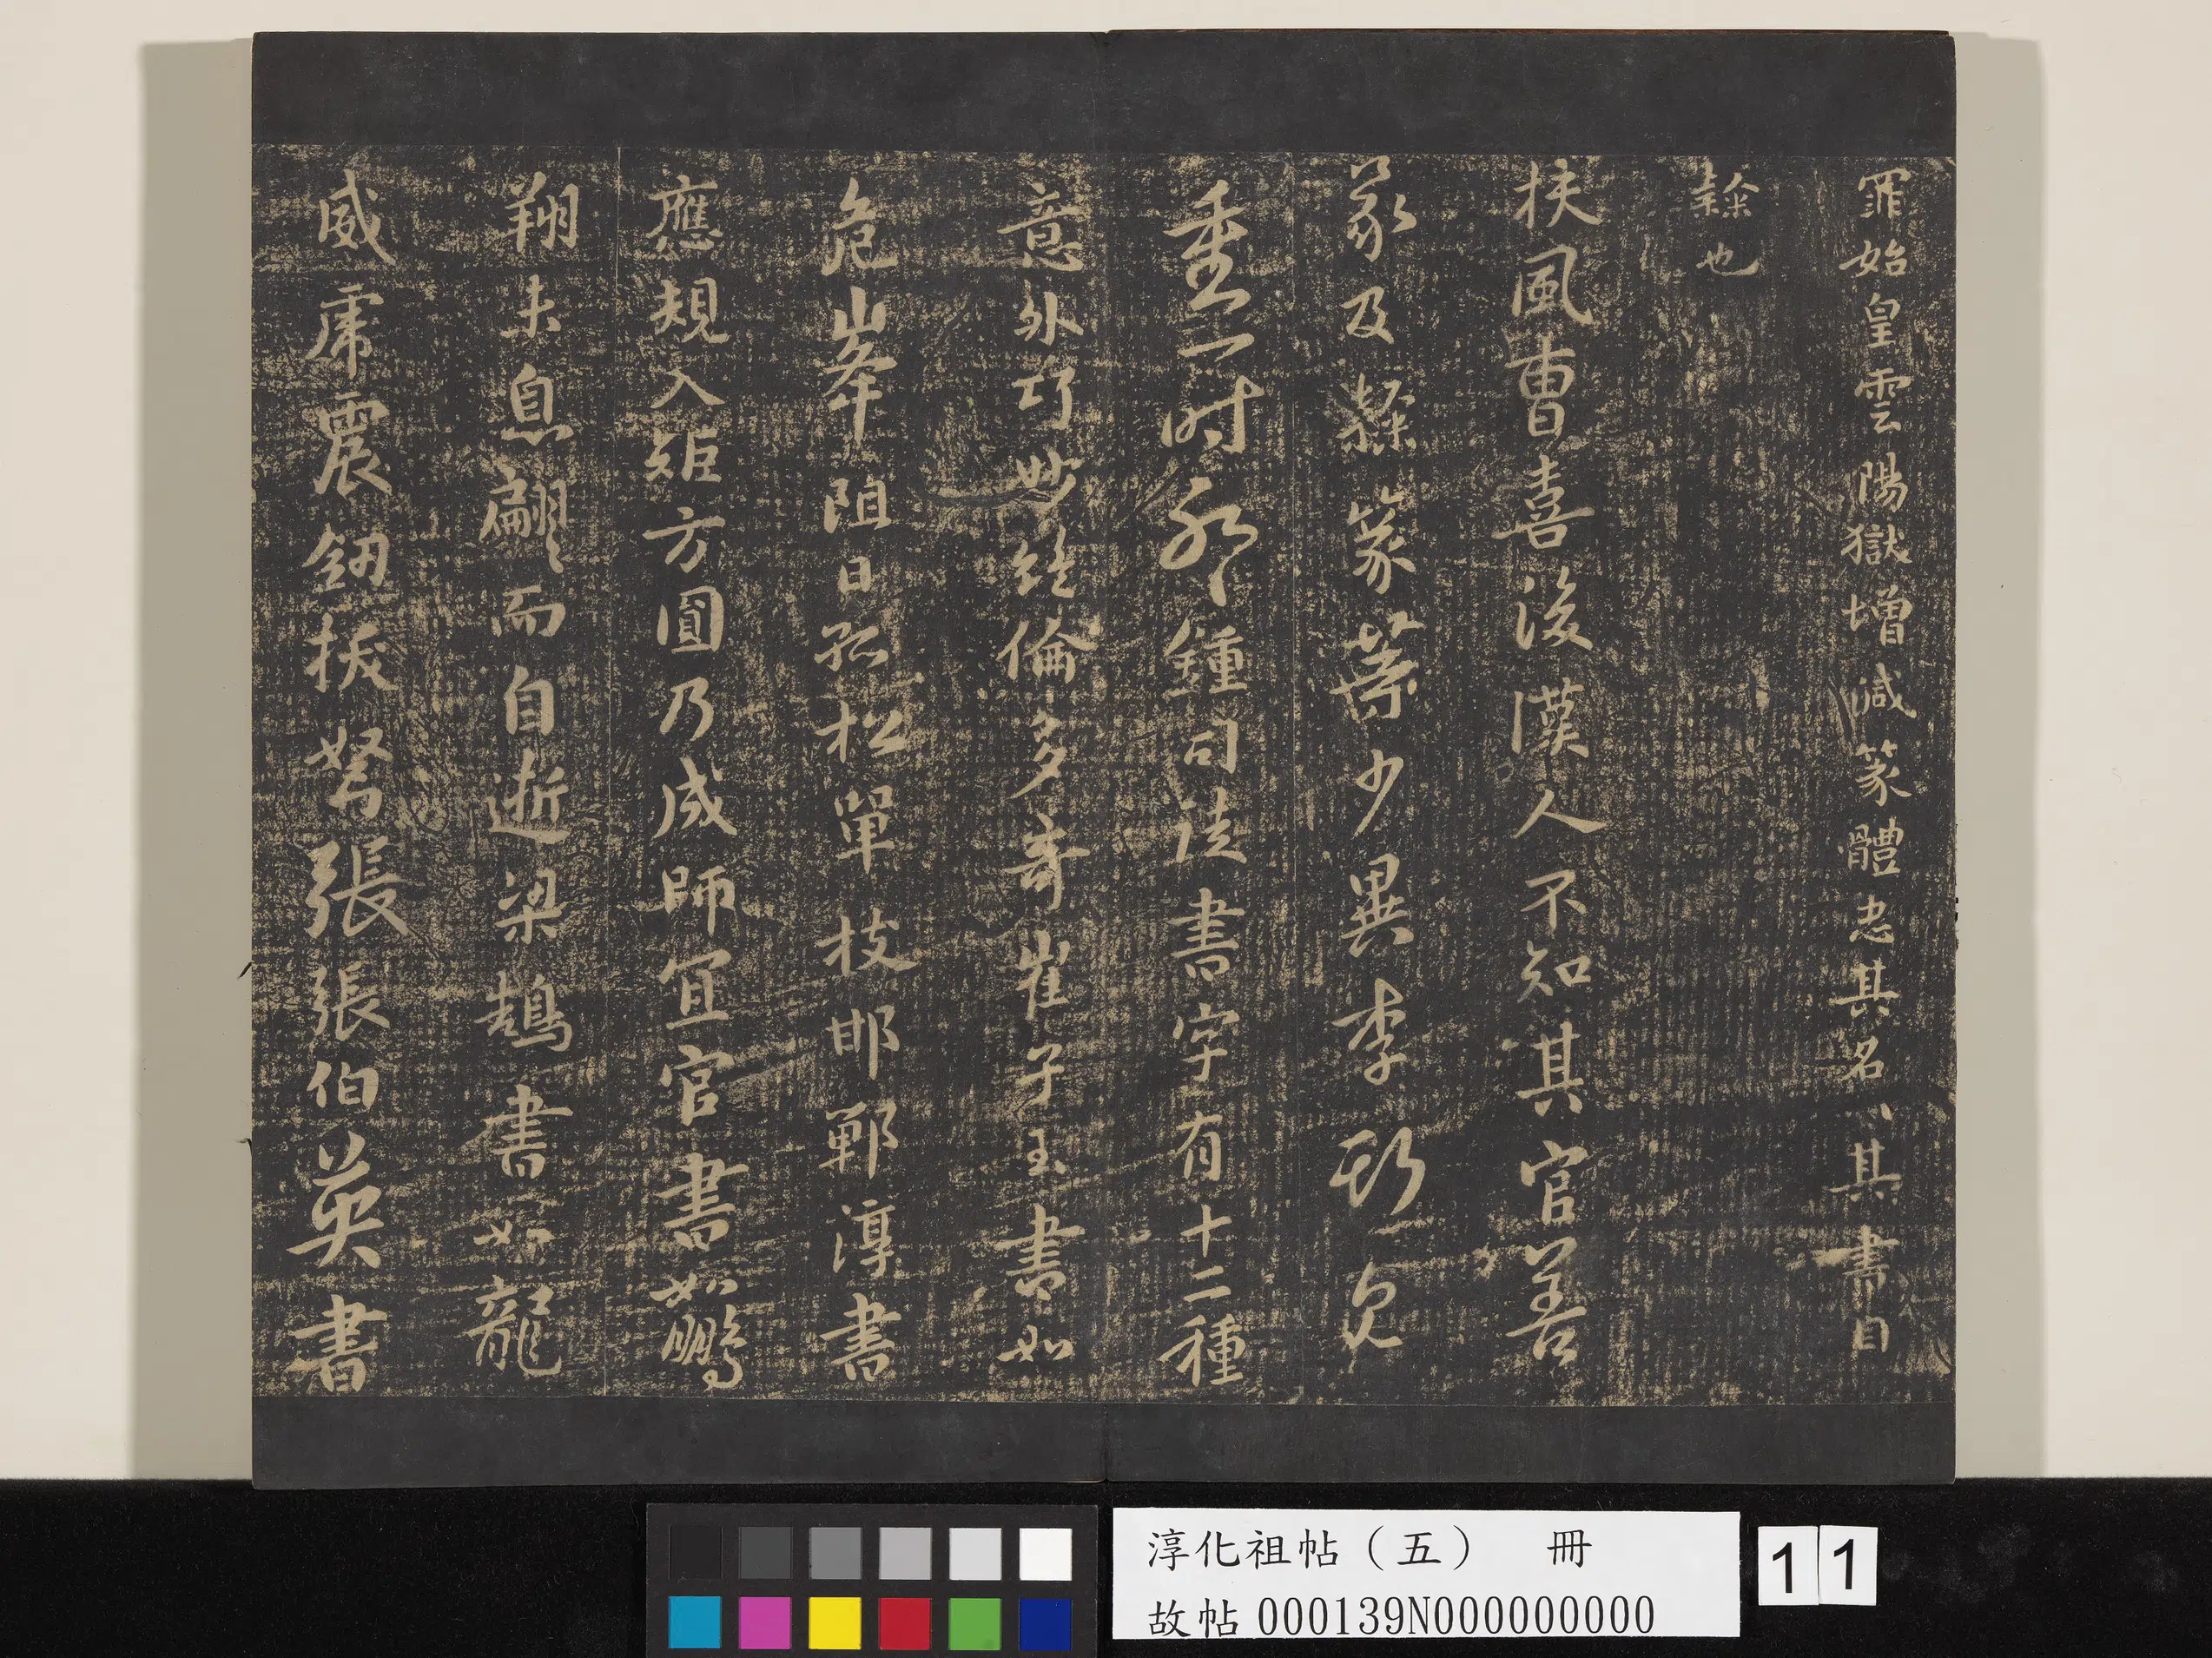 罪始皇雲陽獄增減篆體忠其名以其書自
隸也
扶風曹喜後漢人不知其官善
篆及隸篆葉少異李斯見
重一時耶鍾司徒書字有十二種
意外巧妙絕倫多奇崔子玉書如
危峯阻日孤松單枝邯鄲淳書
應規入矩方圓乃成師宜官書如鵬
翔未息翩〻而自逝梁鵠書如龍
威虎震劒拔弩張張伯英書
淳化祖帖（五） 冊
故帖000139N000000000
11